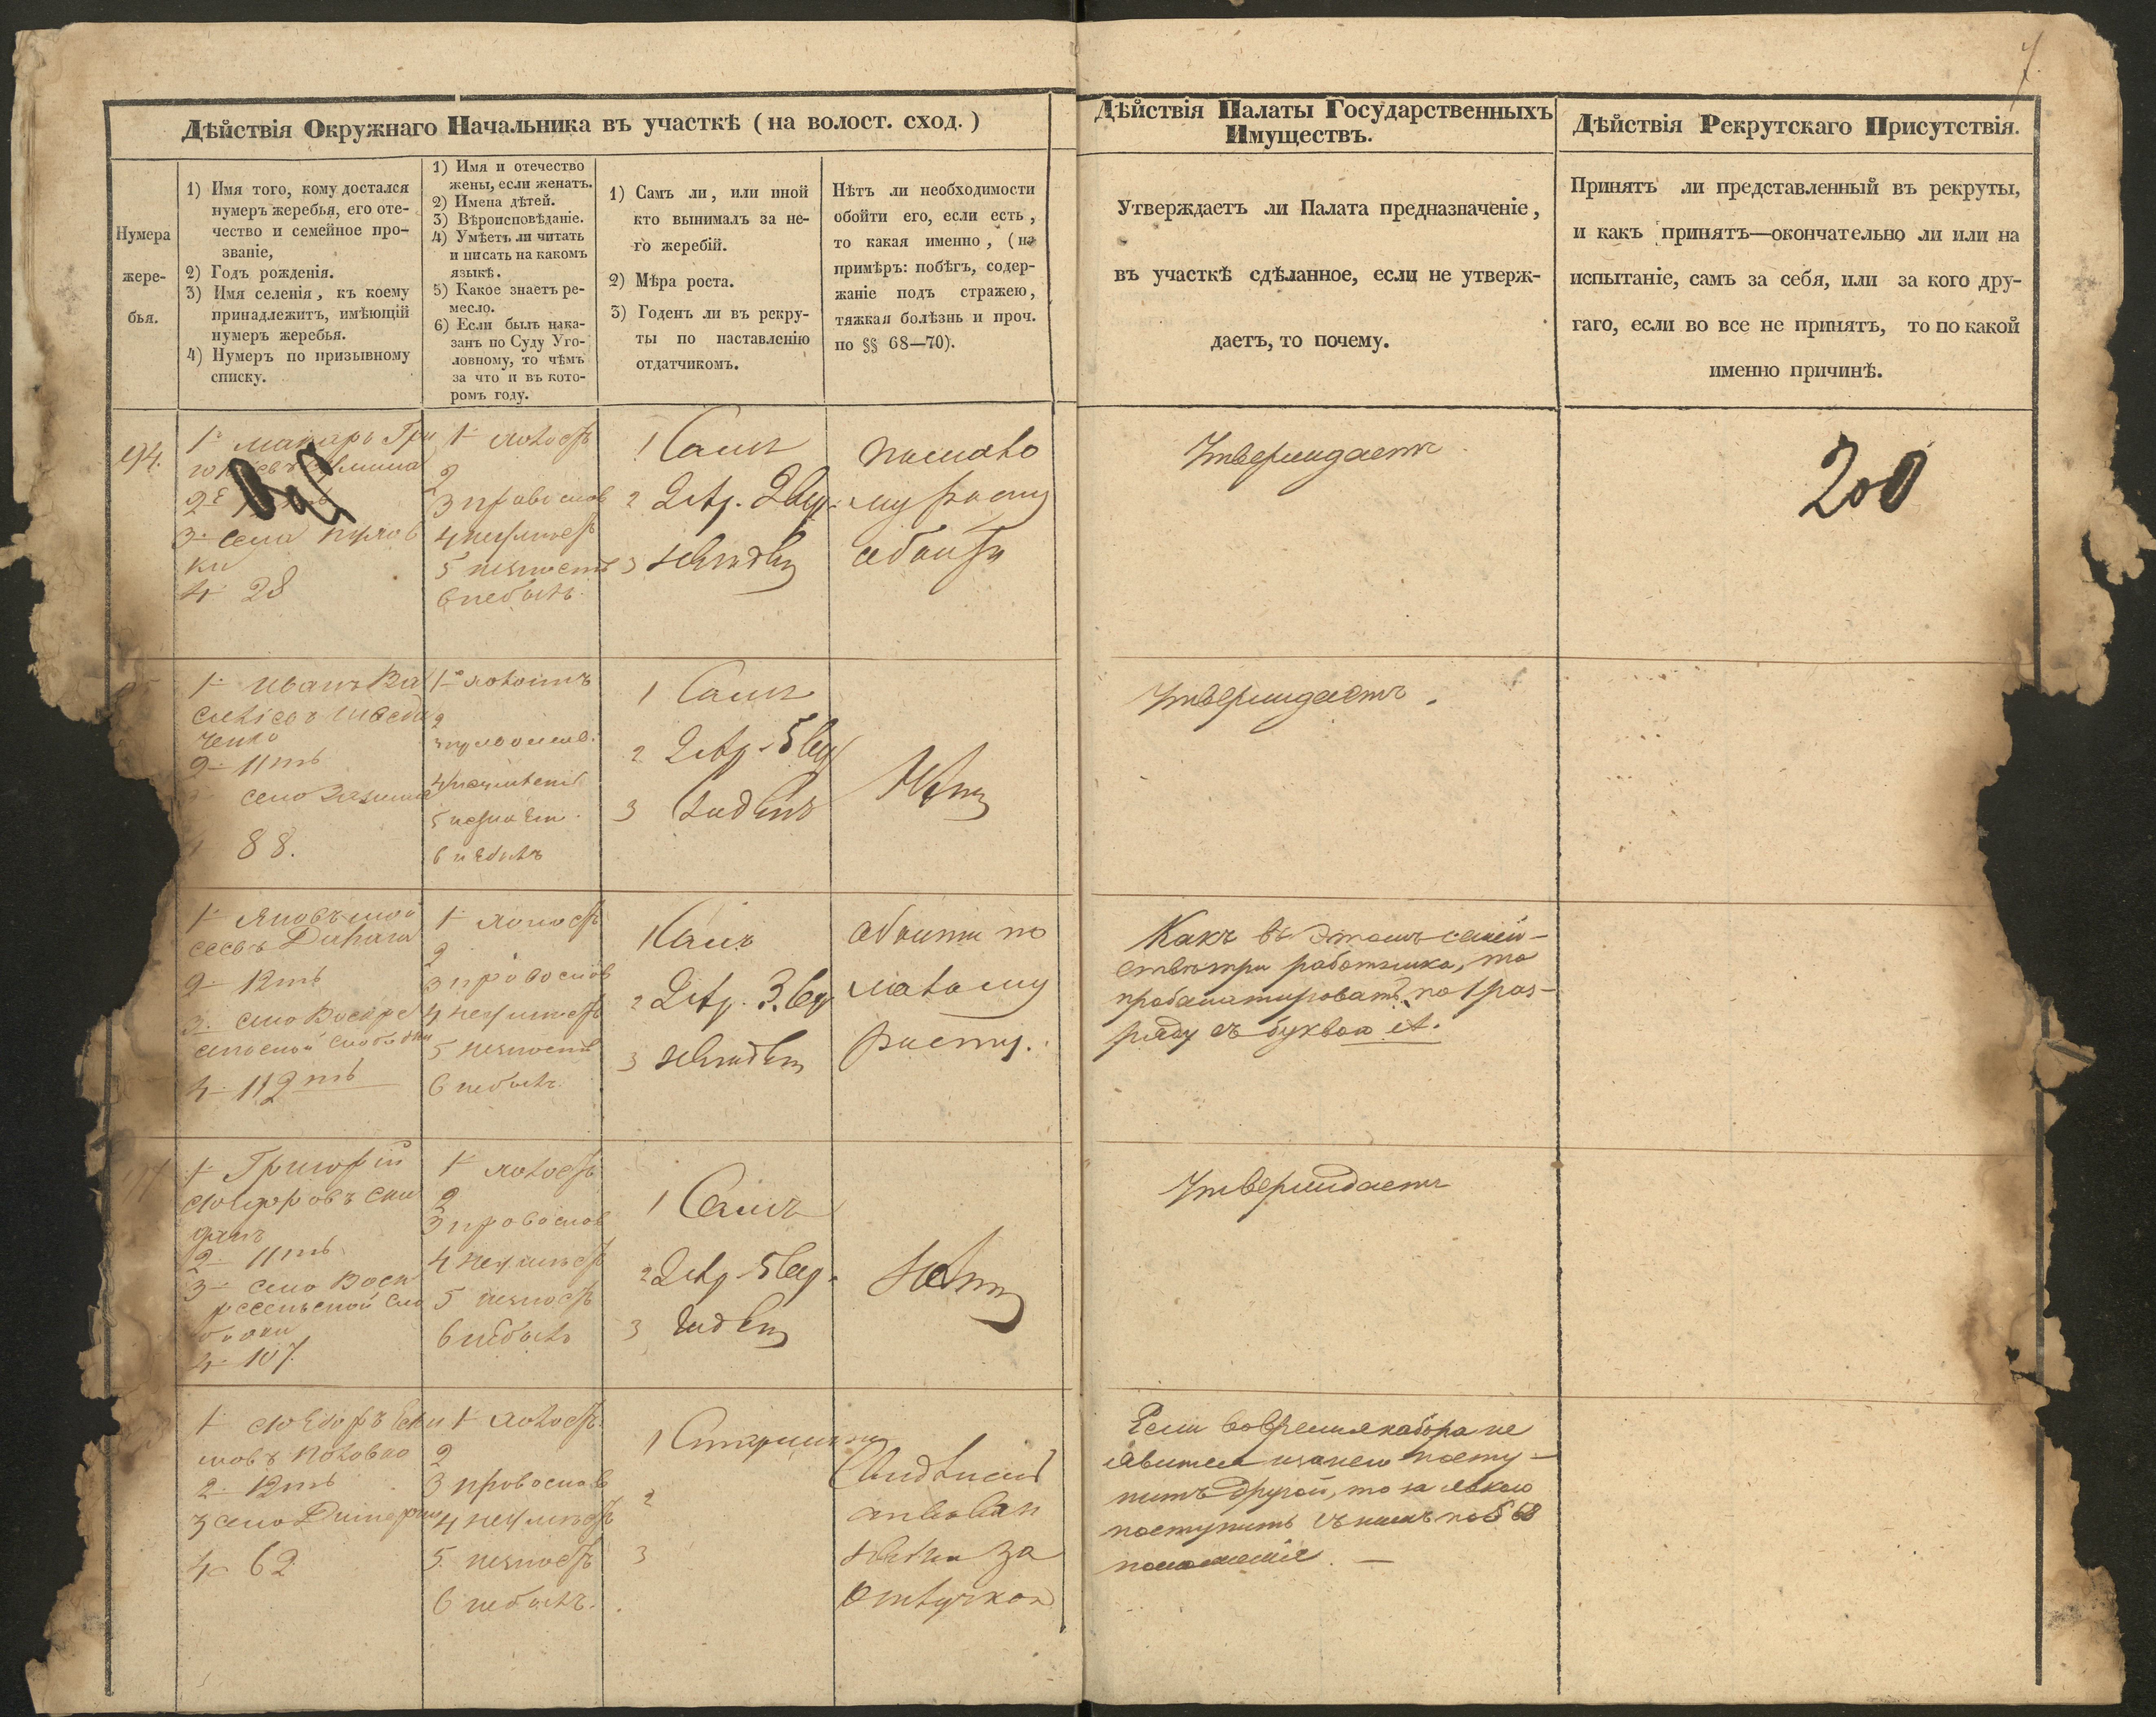 7
Дѣйствія Окружнаго Начальника въ участкѣ (на волост. сход.)
Нумера
жере-
бья.
1) Имя того, кому достался
нумеръ жеребья, его оте-
чество и семейное про-
званіе,
2) Годъ рожденія.
3) Имя селенія, къ коему
принадлежитъ, имѣющій
нумеръ жеребья.
4) Нумеръ по призывному
списку.
1) Имя и отечество
жены, если женатъ.
2) Имена дѣтей.
3) Вѣроисповѣданіе.
4) Умѣетъ ли читать
и писать на какомъ
языкѣ.
5) Какое знаетъ ре-
месло.
6) Если былъ нака-
занъ по Суду Уго-
ловному, то чѣмъ
за что и въ кото-
ромъ году.
1) Самъ ли, или иной
кто вынималъ за не-
го жеребій.
2) Мѣра роста.
3) Годенъ ли въ рекру-
ты по наставленію
отдатчикомъ.
Нѣтъ ли необходимости
обойти его, если есть,
то какая именно, (на
примѣръ: побѣгъ, содер-
жаніе подъ стражею,
тяжкая болѣзнь и проч.
по §§ 68—70).
Дѣйствія Палаты Государственныхъ
Имуществъ.
Утверждаетъ ли Палата предназначеніе,
въ участкѣ сдѣланное, если не утверж-
даетъ, то почему.
Дѣйствія Рекрутскаго Присутствія.
Принятъ ли представленный въ рекруты,
и какъ принятъ—окончательно ли или на
испытаніе, самъ за себя, или за кого дру-
гаго, если во все не принятъ, то по какой
именно причинѣ.
194.
1 Макаръ Гри
3 села
4 28
1 холост
2
3 правослов
4 неумѣет
5 незнаетъ
6 небылъ.
1 Самъ
2 2 ар. 2 вер.
3 негодѣн
помало
му росту
обойти
Утверждаетъ
200
1 Иванъ Ва
2 11ть
3 село
4 88.
1 холостъ
2
3
4
5
6 небылъ
1 Самъ
2 2 ар. 5 вер
3 Годѣнъ
Нѣтъ
Утверждаетъ.
1 Яковъ Мои
сеевъ
2 12ть
3 село Воскре
сенской слободки
4 112ть
1 холост
2
3 провослов
4 неумѣет
5 незнаетъ
6 небылъ.
1 Самъ
2 2 ар. 3. вер
3 негодѣн
обойти по
малому
росту.
Какъ въ этомъ семей-
ствѣ три работника, то
пробалатировать по 1 раз-
ряду съ буквою А.
1 Григорій
2 11ть
3 село Воск
ресенской сло
бодки
4 107.
1 холост
2
3 провослов
4 неумѣет
5 незнает
6 небылъ
1 Самъ
2 2 ар. 5 вер.
3 Годѣн
Нѣтъ
Утверждаетъ
2 12ть
3 село
4 62
1 холост.
2
3 провослов
4 неумѣет
5. незнает
6 небылъ.
1 Старшина
2
3
за
отлучкою
Если вовремя набора не
явится и за нею посту-
питъ другой, то за явкою
поступить съ нимъ по § 68
положенія. —